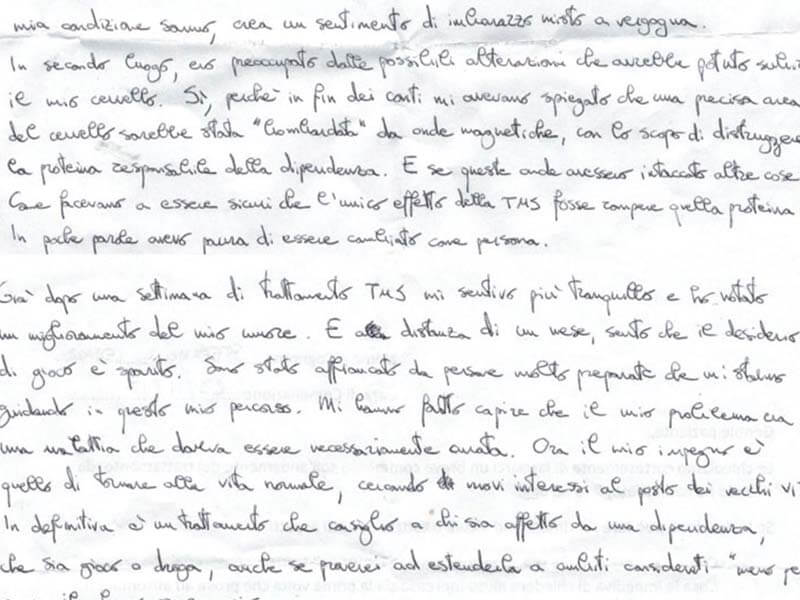 mia condizione sanno, crea un sentimento di imbarazzo misto a vergogna.
In secondo luogo, ero preoccupato dalle possibili alterazioni che avrebbe potuto subi
il mio cervello. Sì, perché in fin dei conti mi avevano spiegato che una precisa area
del cervello sarebbe stata "bombardata" da onde magnetiche, con lo scopo di distruggere
la proteina responsabile della dipendenza. E se queste onde avessero intaccato altre cose
Come facevano a essere sicuri che l'unico effetto della TMS fosse rompere quella proteina
In poche parole avevo paura di essere cambiato come persona.
Già dopo una settimana di trattamento TMS mi sentivo più tranquillo e ho notato
un miglioramento del mio umore. E a distanza di un mese, sento che il desiderio
di gioco è sparito. Sono stato affiancato da persone molto preparate che mi stanno
guidando in questo mio percorso. Mi hanno fatto capire che il mio problema era
una malattia che doveva essere necessariamente curata. Ora il mio impegno è
quello di tornare alla vita normale, cercando nuovi interessi al posto dei vecchi vi
In definitiva è un trattamento che consiglio a chi sia affetto da una dipendenza,
che sia gioco o droga, anche se proverei ad estenderla a ambiti considerati "meno pe